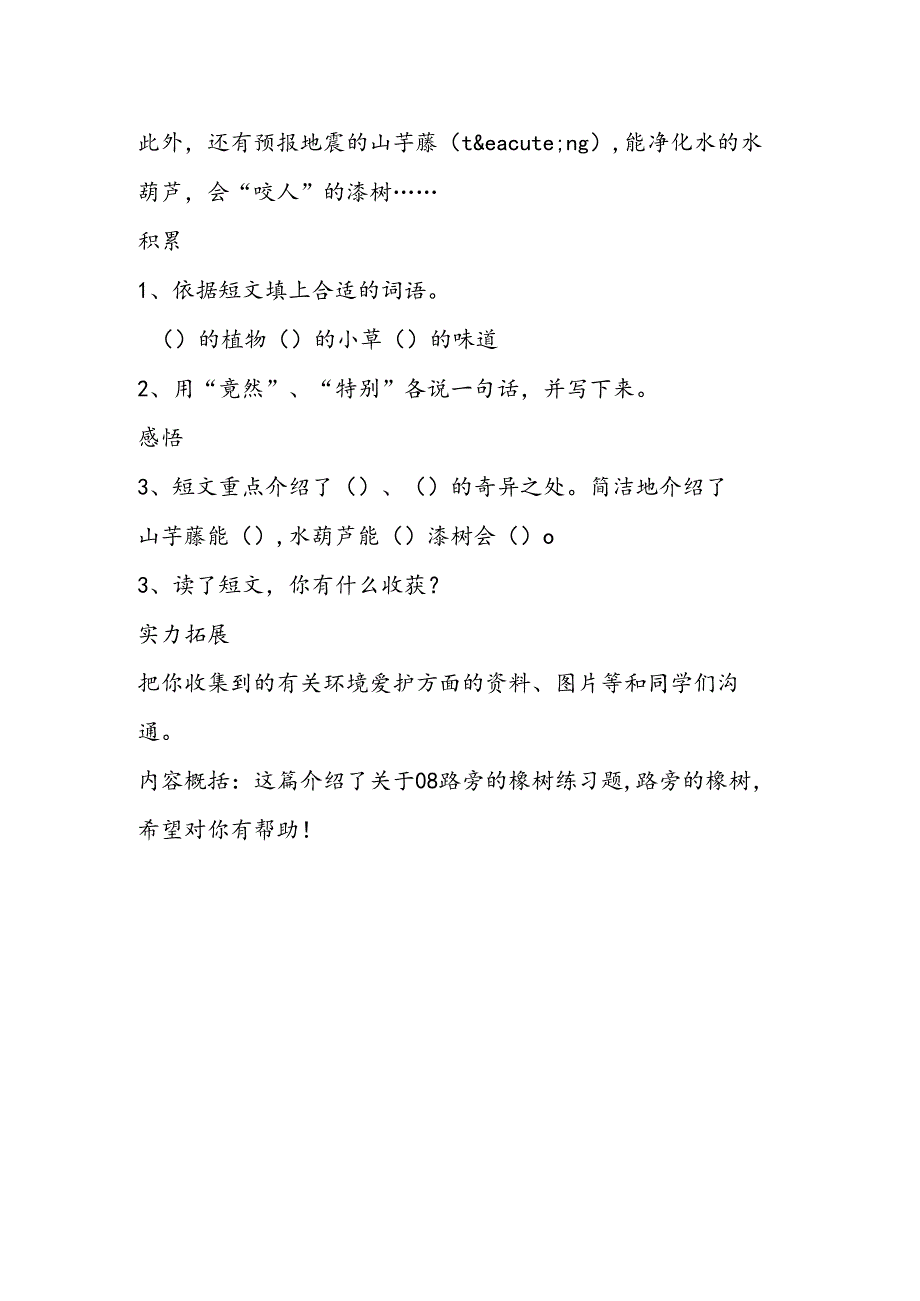 此外，还有预报地震的山芋藤（t&eacute;ng）,能净化水的水
葫芦，会“咬人”的漆树……
积累
1、依据短文填上合适的词语。
（）的植物（）的小草（）的味道
2、用“竟然”、“特别”各说一句话，并写下来。
感悟
3、短文重点介绍了（）、（）的奇异之处。简洁地介绍了
山芋藤能（）,水葫芦能（）漆树会（）o
3、读了短文，你有什么收获？
实力拓展
把你收集到的有关环境爱护方面的资料、图片等和同学们沟
通。
内容概括：这篇介绍了关于08路旁的橡树练习题,路旁的橡树，
希望对你有帮助！